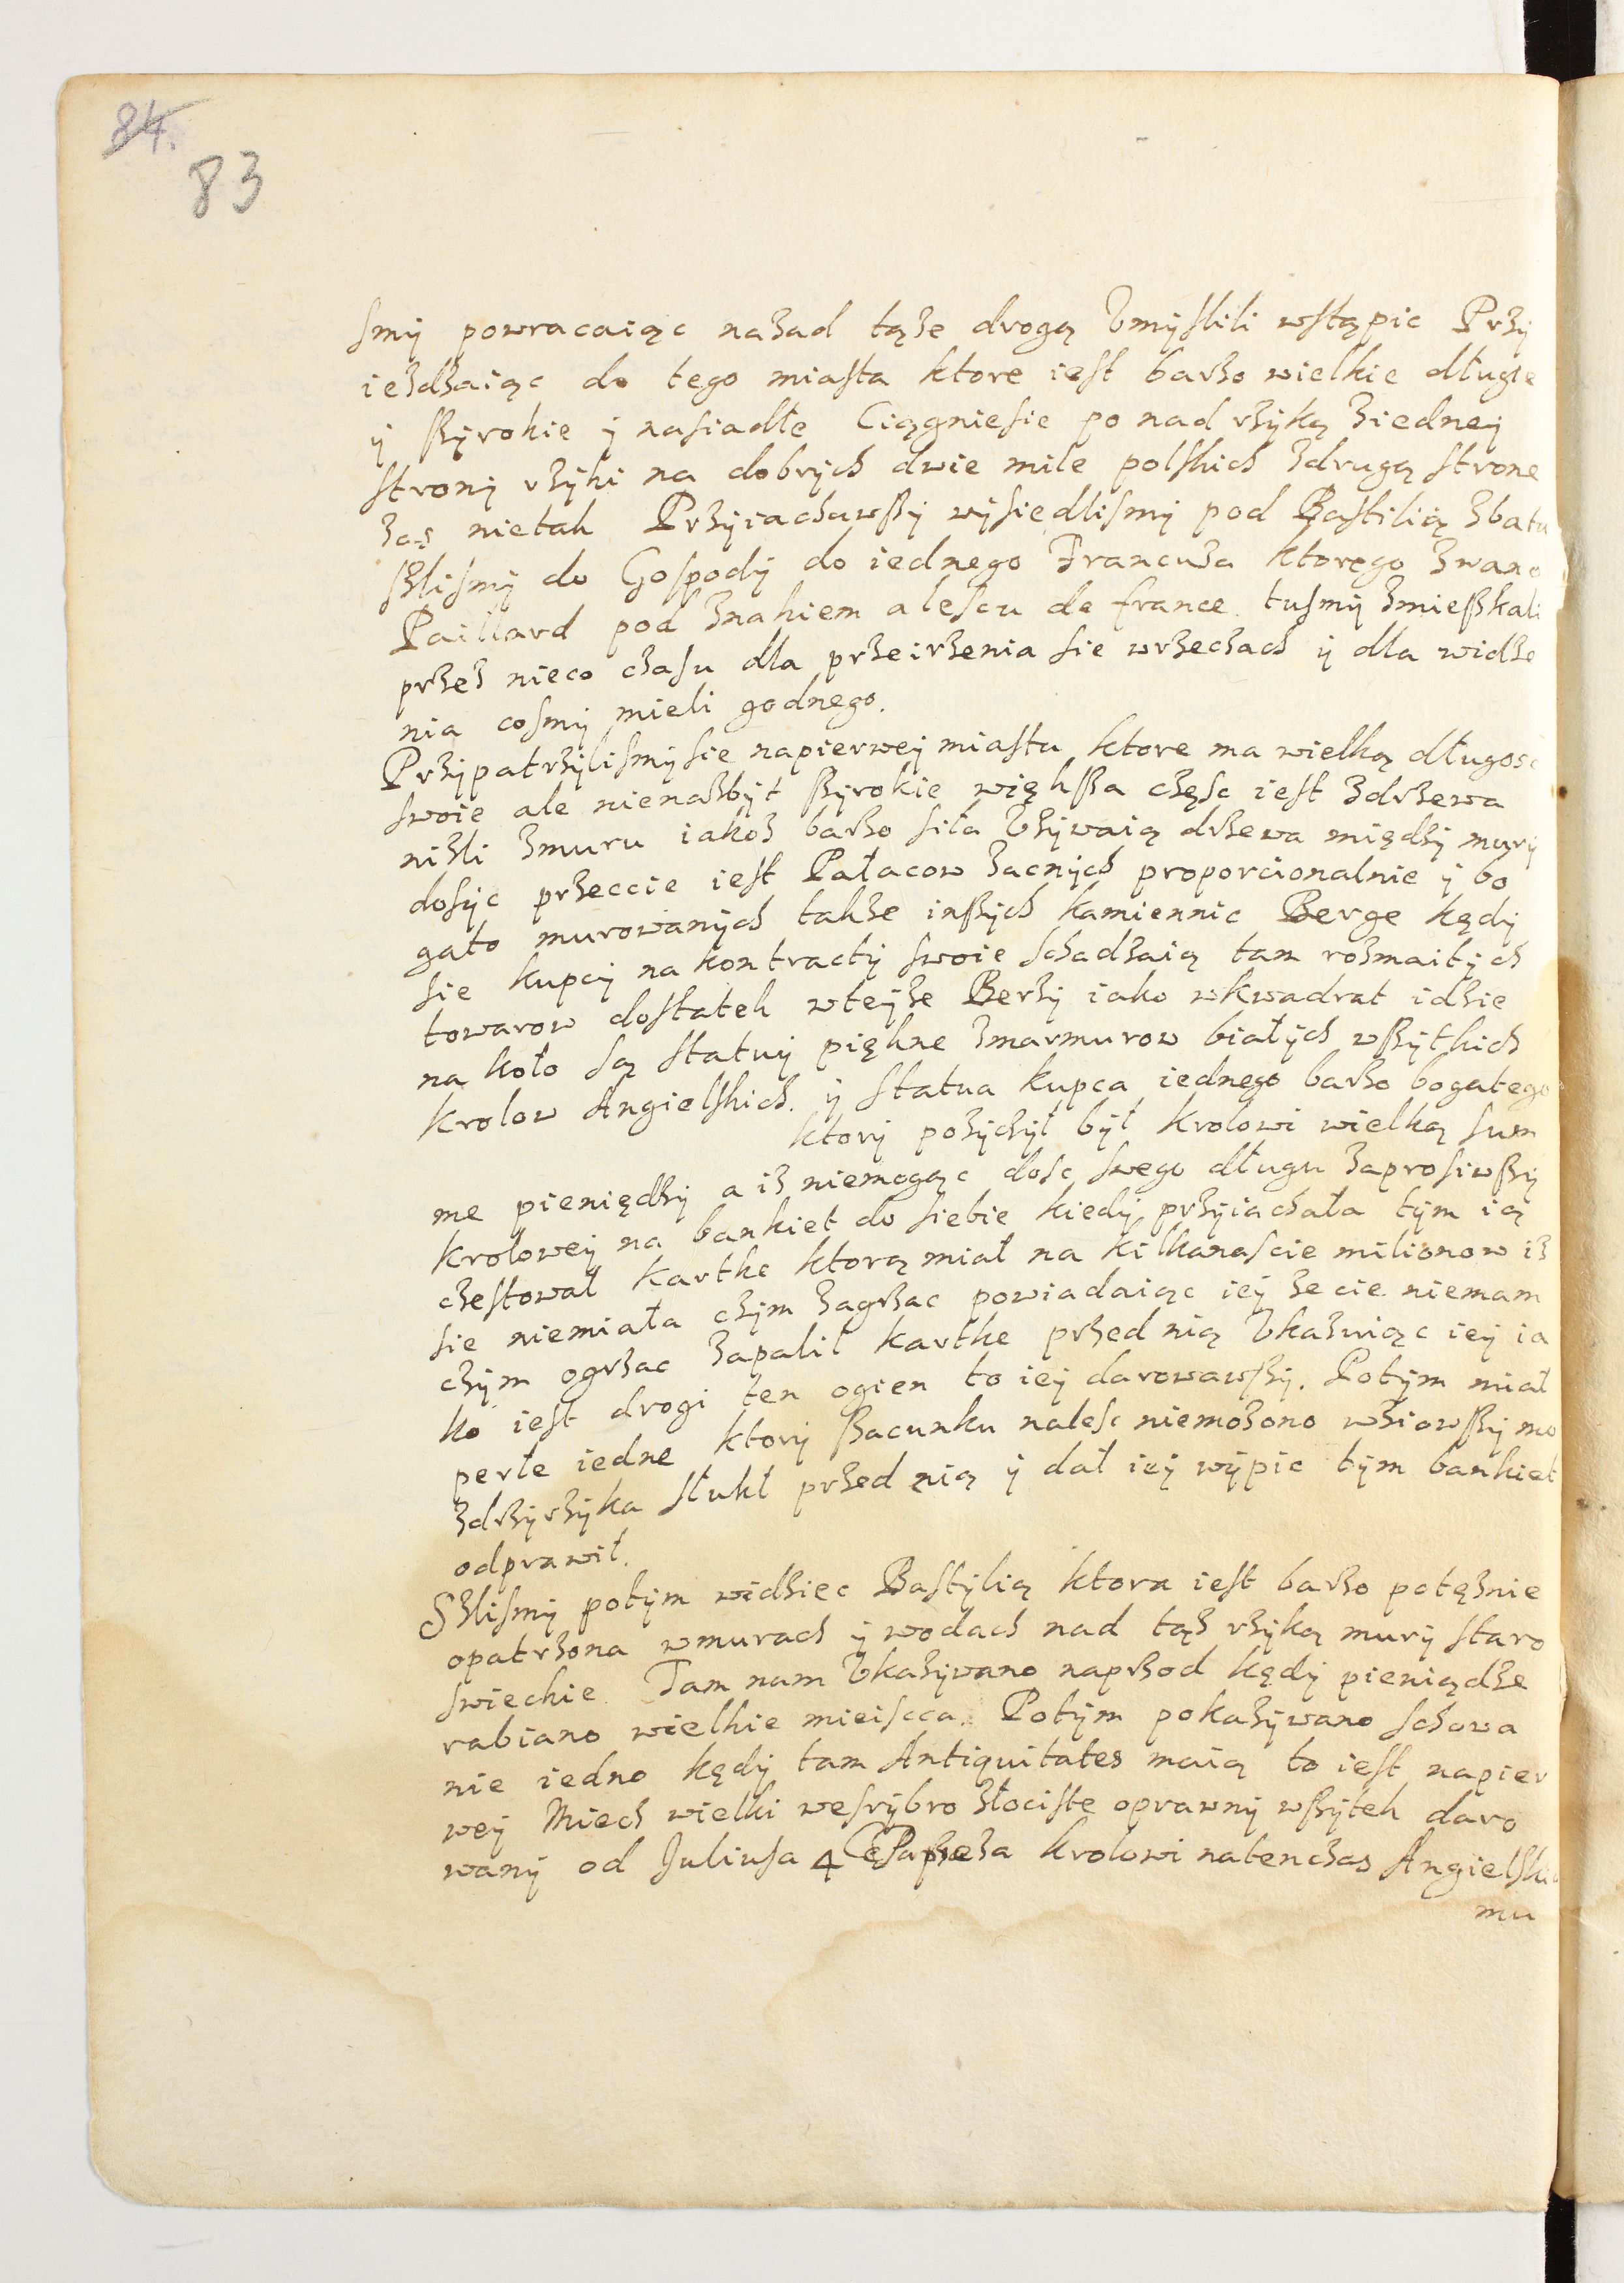 84.
83
smÿ powracaiąc nazad tąże drogą Vmÿslili wstąpic Przÿ
iezdzaiąc do tego miasta ktore iest barzo wielkie długie
ÿ szÿrokie ÿ nasiadłe Ciągniesie po nad rzÿką ziedneÿ
stronÿ rzÿki na dobrÿch dwie mile polskich zdrugą strone
zas nietak Przÿiachawszÿ wÿsiedlismÿ pod Bastilią zbatu
szlismÿ do Gospodÿ do iednego Francuza ktorego zwano
Paillard pod znakiem a lescu de france. tusmÿ zmieszkali
przez nieco czasu dla przeirzenia sie wrzeczach ÿ dla widze
nia cosmÿ mieli godnego.
Przÿpatrzÿlismÿsie napierweÿ miastu ktore ma wielką długosc
swoie ale nienazbÿt szÿrokie większa częsc iest zdrzewa
nizli zmuru iakoz barzo siła Vzÿwaią drzewa międzÿ murÿ
dosÿc przeccie iest Pałacow zacnÿch proporcionalnie ÿ bo
gato murowanÿch takze inszÿch kamiennic Berge kędÿ
sie kupcÿ na kontractÿ swoie schadzaią tam rozmaitÿch
towarow dostatek wteÿze Berzÿ iako wkwadrat idzie
na koło są statuÿ piękne zmarmurow białÿch wszÿtkich
krolow Angielskich. ÿ statua kupca iednego barzo bogatego
ktorÿ pozÿczÿł bÿł krolowi wielką sum
me pieniędzÿ a iz niemogąc dosc swego długu zaprosiwszÿ
kroloweÿ na bankiet do siebie kiedÿ przÿiachała tÿm ią
czestował kartke ktorą miał na kilkanascie milionow iz
sie niemiała czÿm zagrzac powiadaiąc ieÿ ze cie niemam
czÿm ogrzac zapalił kartke przed nią Vkazuiąc ieÿ ia
ko iest drogi ten ogien to ieÿ darowawszÿ. Potÿm miał
perłe iedne ktorÿ szacunku nalesc niemozono wziowszÿ mo
zdzÿrzÿka stukł przed nią ÿ dał ieÿ wÿpic tÿm bankiet
odprawił.
Szlismÿ potÿm widziec Bastÿlią ktora iest barzo potężnie
opatrzona wmurach ÿ wodach nad tąz rzÿką murÿ staro
swieckie. Tam nam Vkazÿwano naprzod kędÿ pieniądze
rabiano wielkie mieiscca. Potÿm pokazÿwano schowa
nie iedno kędÿ tam Antiquitates maią to iest napier
weÿ Miech wielki wesrÿbro złociste oprawnÿ wszÿtek daro
wanÿ od Juliusa 4 Papieza krolowi natenczas Angielskie
mu